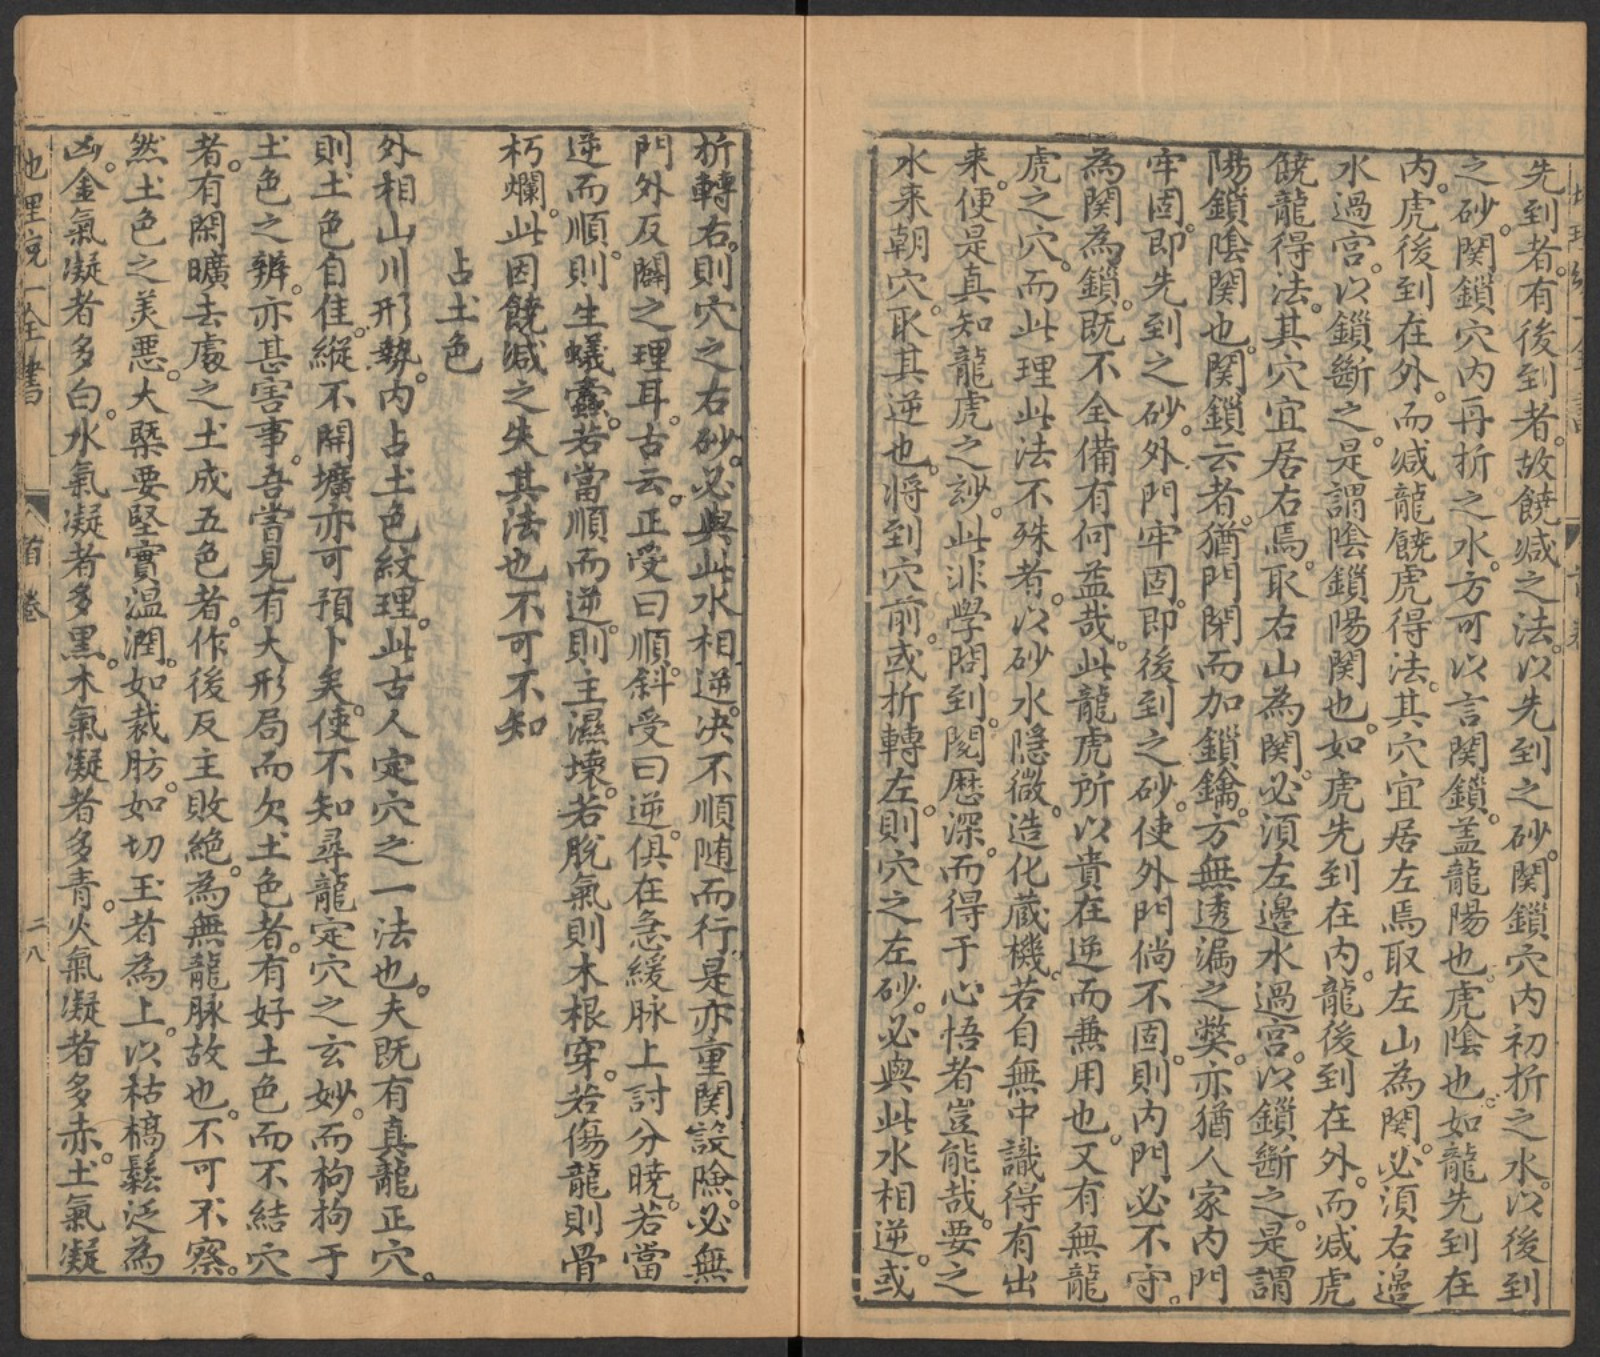 先到者有後到者故饒减之法以先到之砂関鎖穴内初折之水以後到
之砂関鎖穴内再折之水方可以言関鎖盖龍陽也虎陰也如龍先到在
内虎後到在外而减龍饒虎得法其穴宜居左焉取左山為関必須右邊
水過宫以鎖斷之是謂陰鎖陽関也如虎先到在内龍後到在外而减虎
饒龍得法其穴宜居右焉取右山為関必須左邊水過宫以鎖斷之是謂
陽鎖陰関也関鎖云者猶門閉而加鎖鑰方無透漏之獘亦猶人家内門
牢固即先到之砂外門牢固即後到之砂使外門倘不固則内門必不守
為関為鎖既不全備有何益哉此龍虎所以貴在逆而兼用也又有無龍
虎之穴而此理此法不殊者以砂水隱微造化蔵機若自無中識得有出
来便是真知龍虎之玅此非學問到閱歴深而得于心悟者豈能哉要之
水来朝穴取其逆也将到穴前或折轉左則穴之左砂必與此水相逆或
折轉右則穴之右砂必與此水相逆决不順随而行是亦重関設險必無
門外反關之理耳古云正受曰順斜受曰逆俱在急緩脉上討分曉若當
逆而順則生蟻蠹若當順而逆則主濕壊若脱氣則木根穿若傷龍則骨
朽爛此因饒减之失其法也不可不知
占土色
外相山川形勢内占土色紋理此古人定穴之一法也夫既有真龍正穴
則土色自佳縱不開壙亦可預卜矣使不知尋龍定穴之玄妙而枸枸于
土色之辨亦甚害事吾嘗見有大形局而欠土色者有好土色而不結穴
者有閑曠去處之土成五色者作後反主敗絶為無龍脉故也不可不察
然土色之美惡大槩要堅實温潤如裁肪如切玉者為上以枯槁鬆泛為
凶金氣凝者多白水氣凝者多黒木氣凝者多青火氣凝者多赤土氣凝
地理統一全書
首卷
二八